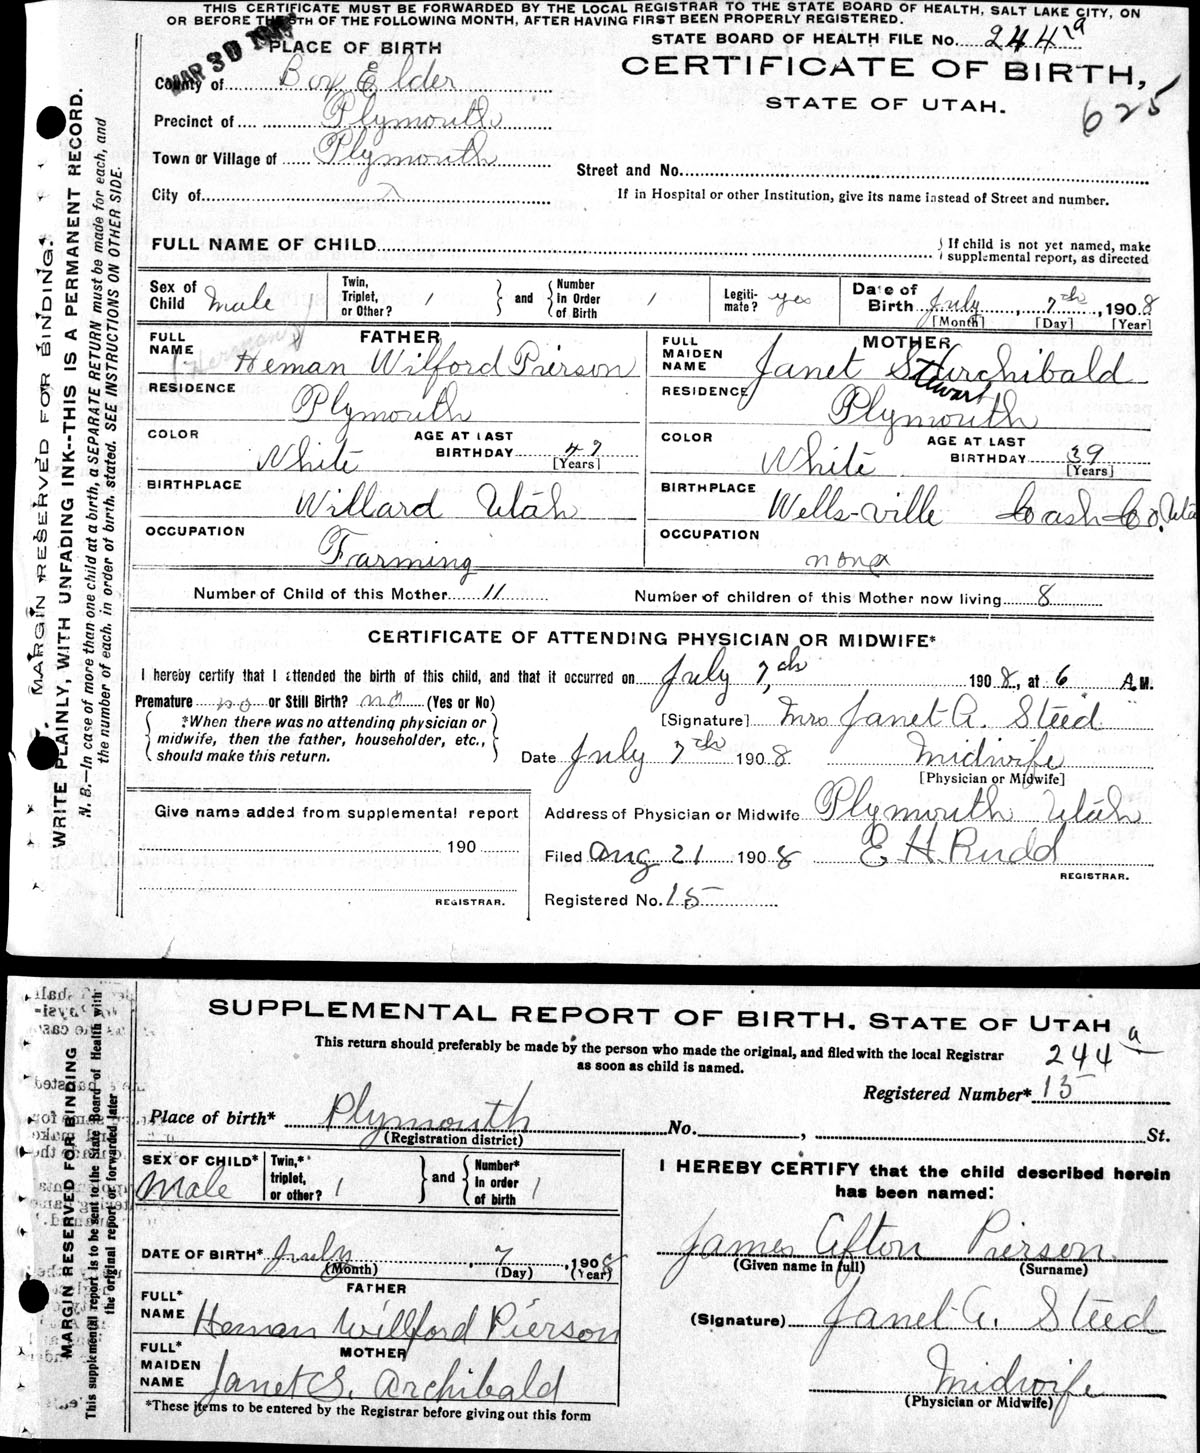 THIS CERTIFICATE MUST BE FORWARDED BY THE LOCAL REGISTRAR TO THE STATE BOARD OF HEALTH, SALT LAKE CITY, ON
OR BEFORE THE 5TH OF THE FOLLOWING MONTH, AFTER HAVING FIRST BEEN PROPERLY REGISTERED.
MAR 30
PLACE OF BIRTH
STATE BOARD OF HEALTH FILE No. 244 a
County of Box Elder
CERTIFICATE OF BIRTH,
STATE OF UTAH.
625
Precinct of Plymouth
Town or Village of Plymouth
Street and No.
City of
If in Hospital or other Institution, give its name instead of Street and number.
FULL NAME OF CHILD
{ If child is not yet named, make
supplemental report, as directed
Sex of Child Male
Twin, Triplet, or Other? 1
} and { Number in Order of Birth 1
Legiti-mate? yes
Date of Birth July 7th, 1908
[Month] [Day] [Year]
FATHER
FULL NAME Heman Wilford Pierson
(Herman)
MOTHER
FULL MAIDEN NAME Janet S Archibald
Stewart
RESIDENCE Plymouth
RESIDENCE Plymouth
COLOR White AGE AT LAST BIRTHDAY 47 [Years]
COLOR White AGE AT LAST BIRTHDAY 39 [Years]
BIRTHPLACE Willard Utah
BIRTHPLACE Wells-ville Cash Co, Utah
OCCUPATION Farming
OCCUPATION none
Number of Child of this Mother 11 Number of children of this Mother now living 8
CERTIFICATE OF ATTENDING PHYSICIAN OR MIDWIFE*
I hereby certify that I attended the birth of this child, and that it occurred on July 7th, 1908, at 6 A.M.
Premature no or Still Birth? no (Yes or No)
{ *When there was no attending physician or
midwife, then the father, householder, etc.,
should make this return. }
[Signature] Mrs Janet A. Steed
Date July 7th 1908. Midwife
[Physician or Midwife]
Give name added from supplemental report
190
REGISTRAR.
Address of Physician or Midwife Plymouth Utah
Filed Aug 21 1908 E. H. Rudd
REGISTRAR.
Registered No. 15
MARGIN RESERVED FOR BINDING.
WRITE PLAINLY, WITH UNFADING INK--THIS IS A PERMANENT RECORD.
N. B.—In case of more than one child at a birth, a SEPARATE RETURN must be made for each, and
the number of each, in order of birth, stated. SEE INSTRUCTIONS ON OTHER SIDE.
SUPPLEMENTAL REPORT OF BIRTH. STATE OF UTAH
This return should preferably be made by the person who made the original, and filed with the local Registrar
as soon as child is named.
244 a
Registered Number* 15
Place of birth* Plymouth No. , St.
(Registration district)
SEX OF CHILD* Male
Twin,* triplet, or other? 1
} and { Number* in order of birth 1
I HEREBY CERTIFY that the child described herein
has been named:
James Afton Pierson
(Given name in full) (Surname)
DATE OF BIRTH* July, 7, 1908
(Month) (Day) (Year)
FATHER
FULL* NAME Heman Willford Pierson
(Signature) Janet A. Steed
MOTHER
FULL* MAIDEN NAME Janet S. Archibald
Midwife
(Physician or Midwife)
*These items to be entered by the Registrar before giving out this form
MARGIN RESERVED FOR BINDING
This supplemental report is to be sent to the State Board of Health with
the original report or forwarded later